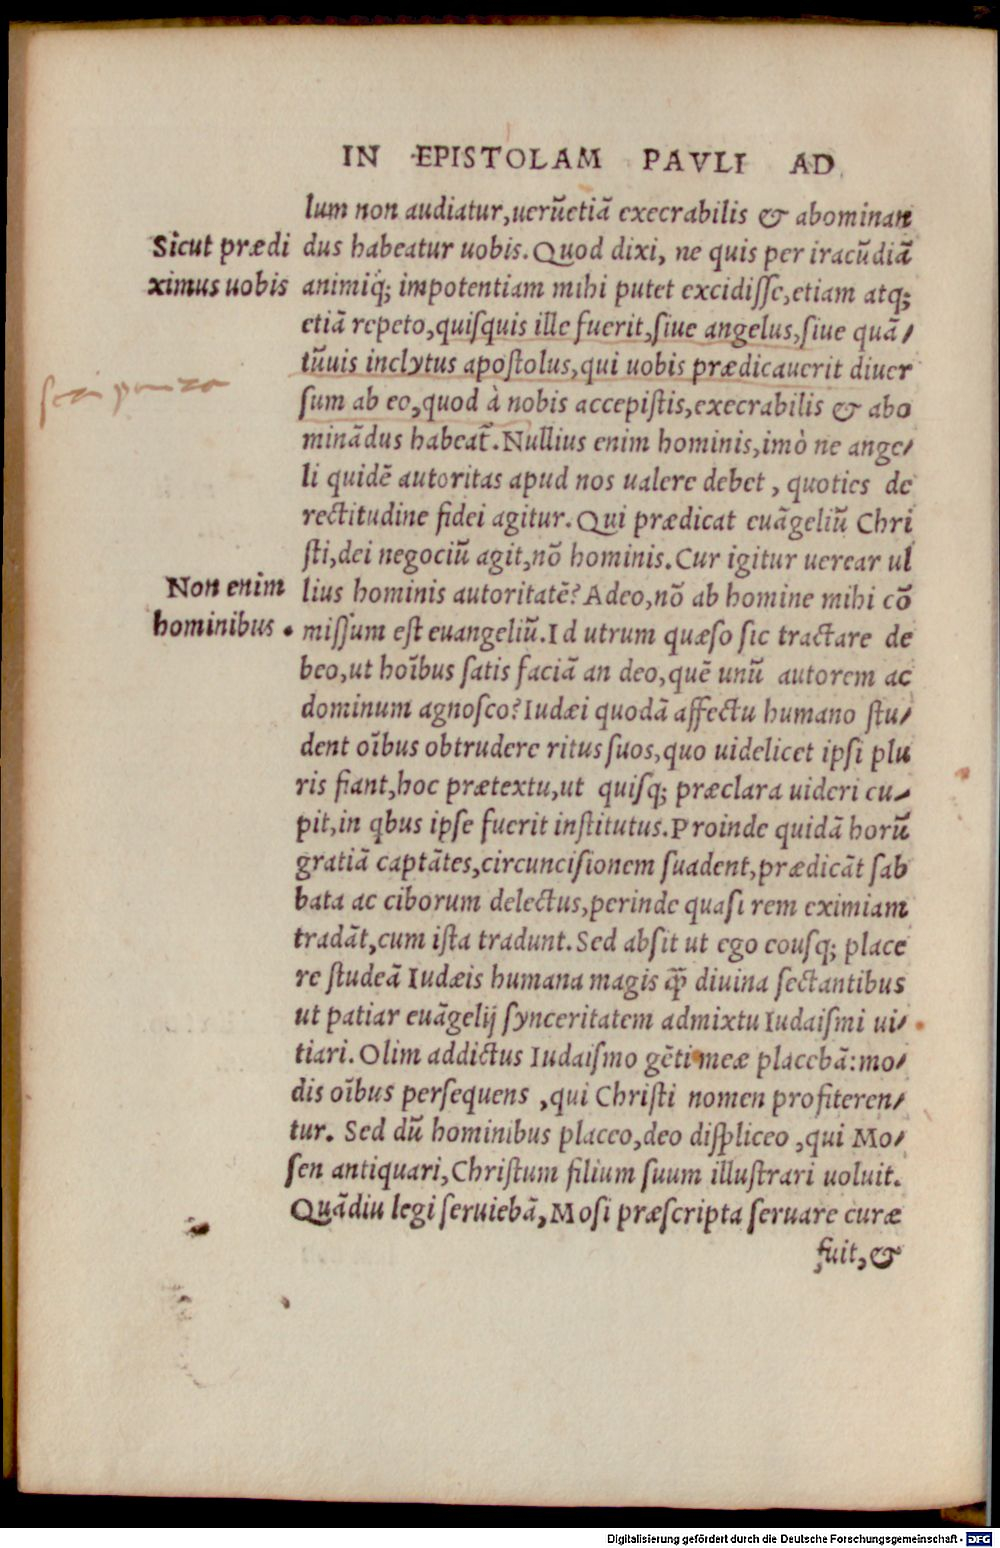 IN EPISTOLAM PAVLI AD
lum non audiatur,uerũetiã execrabilis & abominan
Sicut prædi
dus habeatur uobis. Quod dixi, ne quis per iracũdiã
ximus uobis
animiq́; impotentiam mihi putet excidiſſe,etiam atq;
etiã repeto,quiſquis ille fuerit,ſiue angelus,ſiue quã/
tũuis inclytus apoſtolus,qui uobis prædicauerit diuer
ſum ab eo,quod à nobis accepiſtis,execrabilis & abo
minãdus habeat̃. Nullius enim hominis,imò ne ange/
li quidẽ autoritas apud nos ualere debet, quoties de
rectitudine fidei agitur. Qui prædicat euãgeliũ Chri
ſti,dei negociũ agit,nõ hominis. Cur igitur uerear ul
Non enim
lius hominis autoritatẽ? Adeo,nõ ab homine mihi cõ
hominibus .
miſſum eſt euangeliũ. Id utrum quæſo ſic tractare de
beo,ut hoĩbus ſatis faciã an deo,quẽ unũ autorem ac
dominum agnoſco? Iudæi quodã affectu humano ſtu/
dent oĩbus obtrudere ritus ſuos,quo uidelicet ipſi plu
ris fiant,hoc prætextu,ut quiſq; præclara uideri cu/
pit,in qbus ipſe fuerit inſtitutus. Proinde quidã horũ
gratiã captãtes,circunciſionem ſuadent,prædicãt ſab
bata ac ciborum delectus,perinde quaſi rem eximiam
tradãt,cum iſta tradunt. Sed abſit ut ego eouſq; place
re ſtudeã Iudæis humana magis q̃ diuina ſectantibus
ut patiar euãgelij ſynceritatem admixtu Iudaiſmi ui/
tiari. Olim addictus Iudaiſmo gẽti meæ placebã: mo/
dis oĩbus perſequens ,qui Chriſti nomen profiteren/
tur. Sed dũ hominibus placeo,deo diſpliceo ,qui Mo/
ſen antiquari,Chriſtum filium ſuum illuſtrari uoluit.
Quãdiu legi ſeruiebã, Moſi præſcripta ſeruare curæ
fuit, &
Digitalisierung gefördert durch die Deutsche Forschungsgemeinschaft - DFG